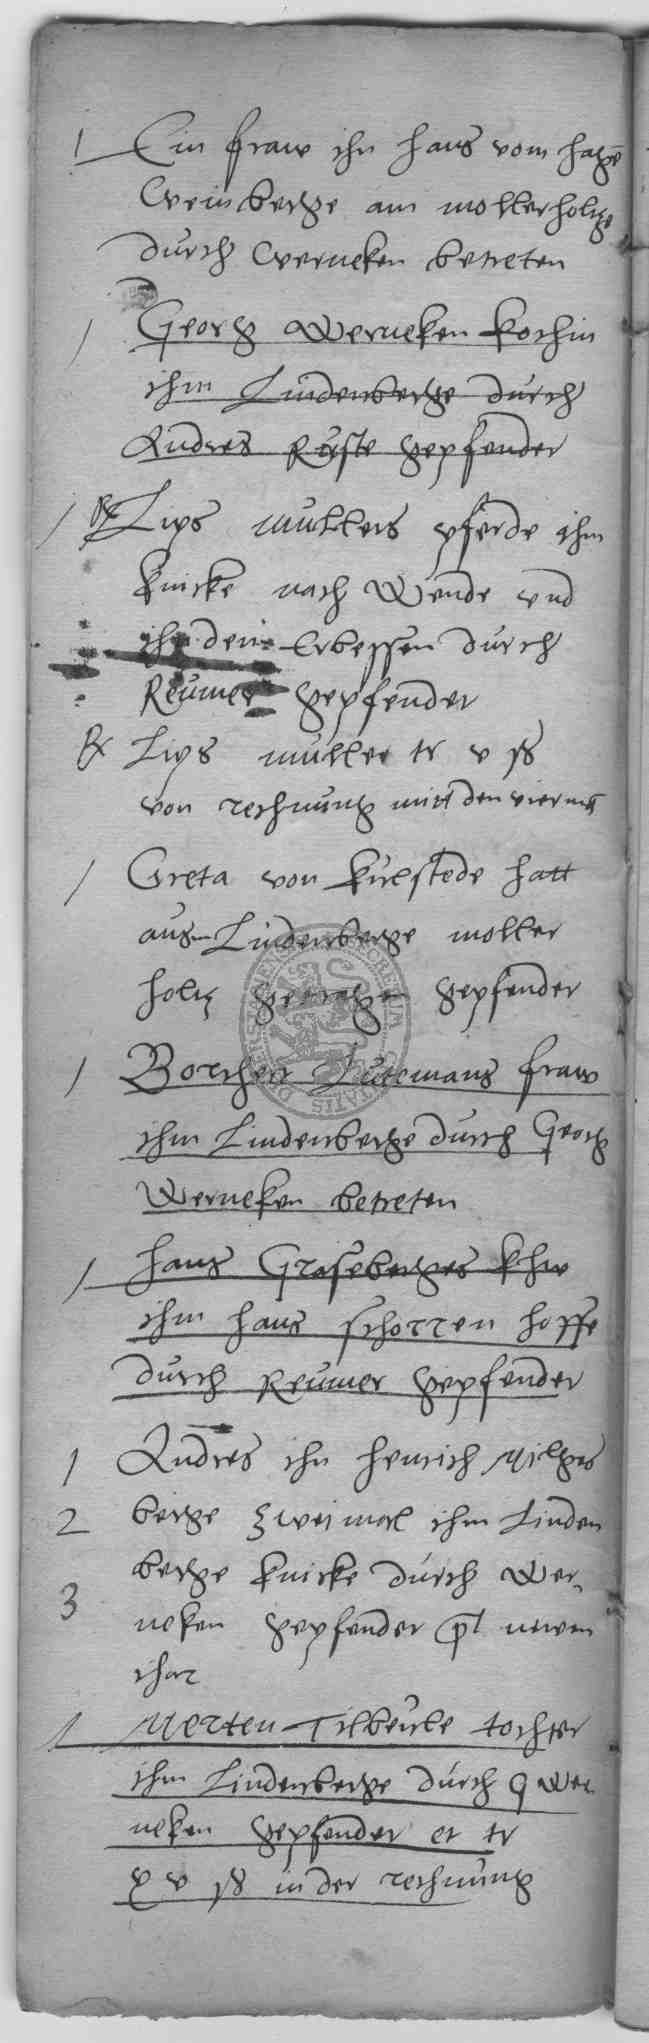 1 Ein fraw ihn Hans vom Hagē
Weinberge am mollerholtze
durch Werneken betreten
/ Georg Werneken kochin
ihm Lindenberge durch
Andres Ruste gepfender
/ Rx Lips mullers pferde ihm
knicke nach Wende vnd
ihn den Erbessen durch
Reumer gepfender
Rx Lips muller tr v ß
von rechnung mitt den viermē
/ Greta von Kulstede hatt
aus Lindenberge moller
holtz getragen gepfender
/ Borchert Lutemans fraw
ihm Lindenberge durch Georg
Werneken betreten
/ Hans Graseberges khw
ihm Hans schorren hoffe
durch Reumer gepfender
1 Andres ihn Henrich Milges
2 berge zweimal ihm Linden
berge knicke durch Wer
3 neken gepfender newen
ihar
1 Merten Tilbeule tochter
ihm Lindenberge durch G Wer
neken gepfender et tr
x v ß in der rechnung